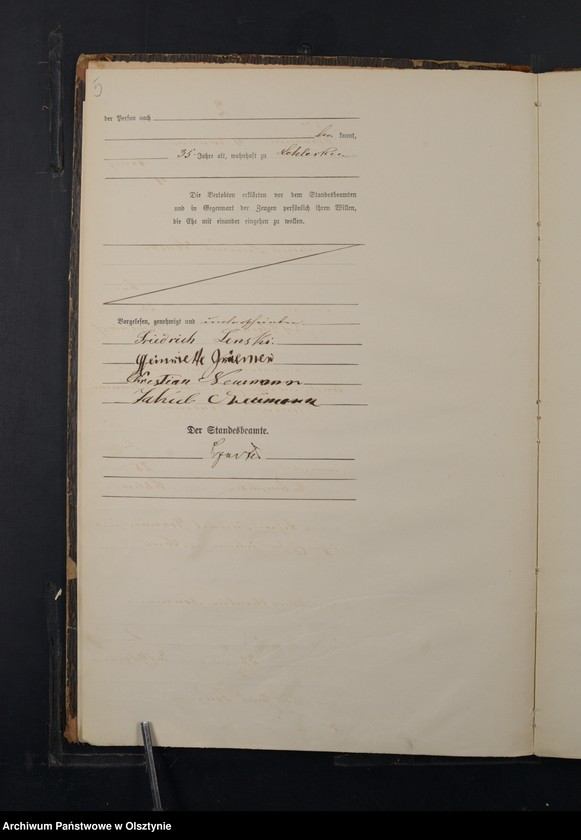 5
der Person nach
be kannt,
35 Jahre alt, wohnhaft zu
Die Verlobten erklärten vor dem Standesbeamten
und in Gegenwart der Zeugen persönlich ihren Willen,
die Ehe mit einander eingehen zu wollen.
Vorgelesen, genehmigt und unterschrieben
Friedrich Lenski.
Christian Neumann
Jakob Neumann
Der Standesbeamte.
Archiwum Państwowe w Olsztynie